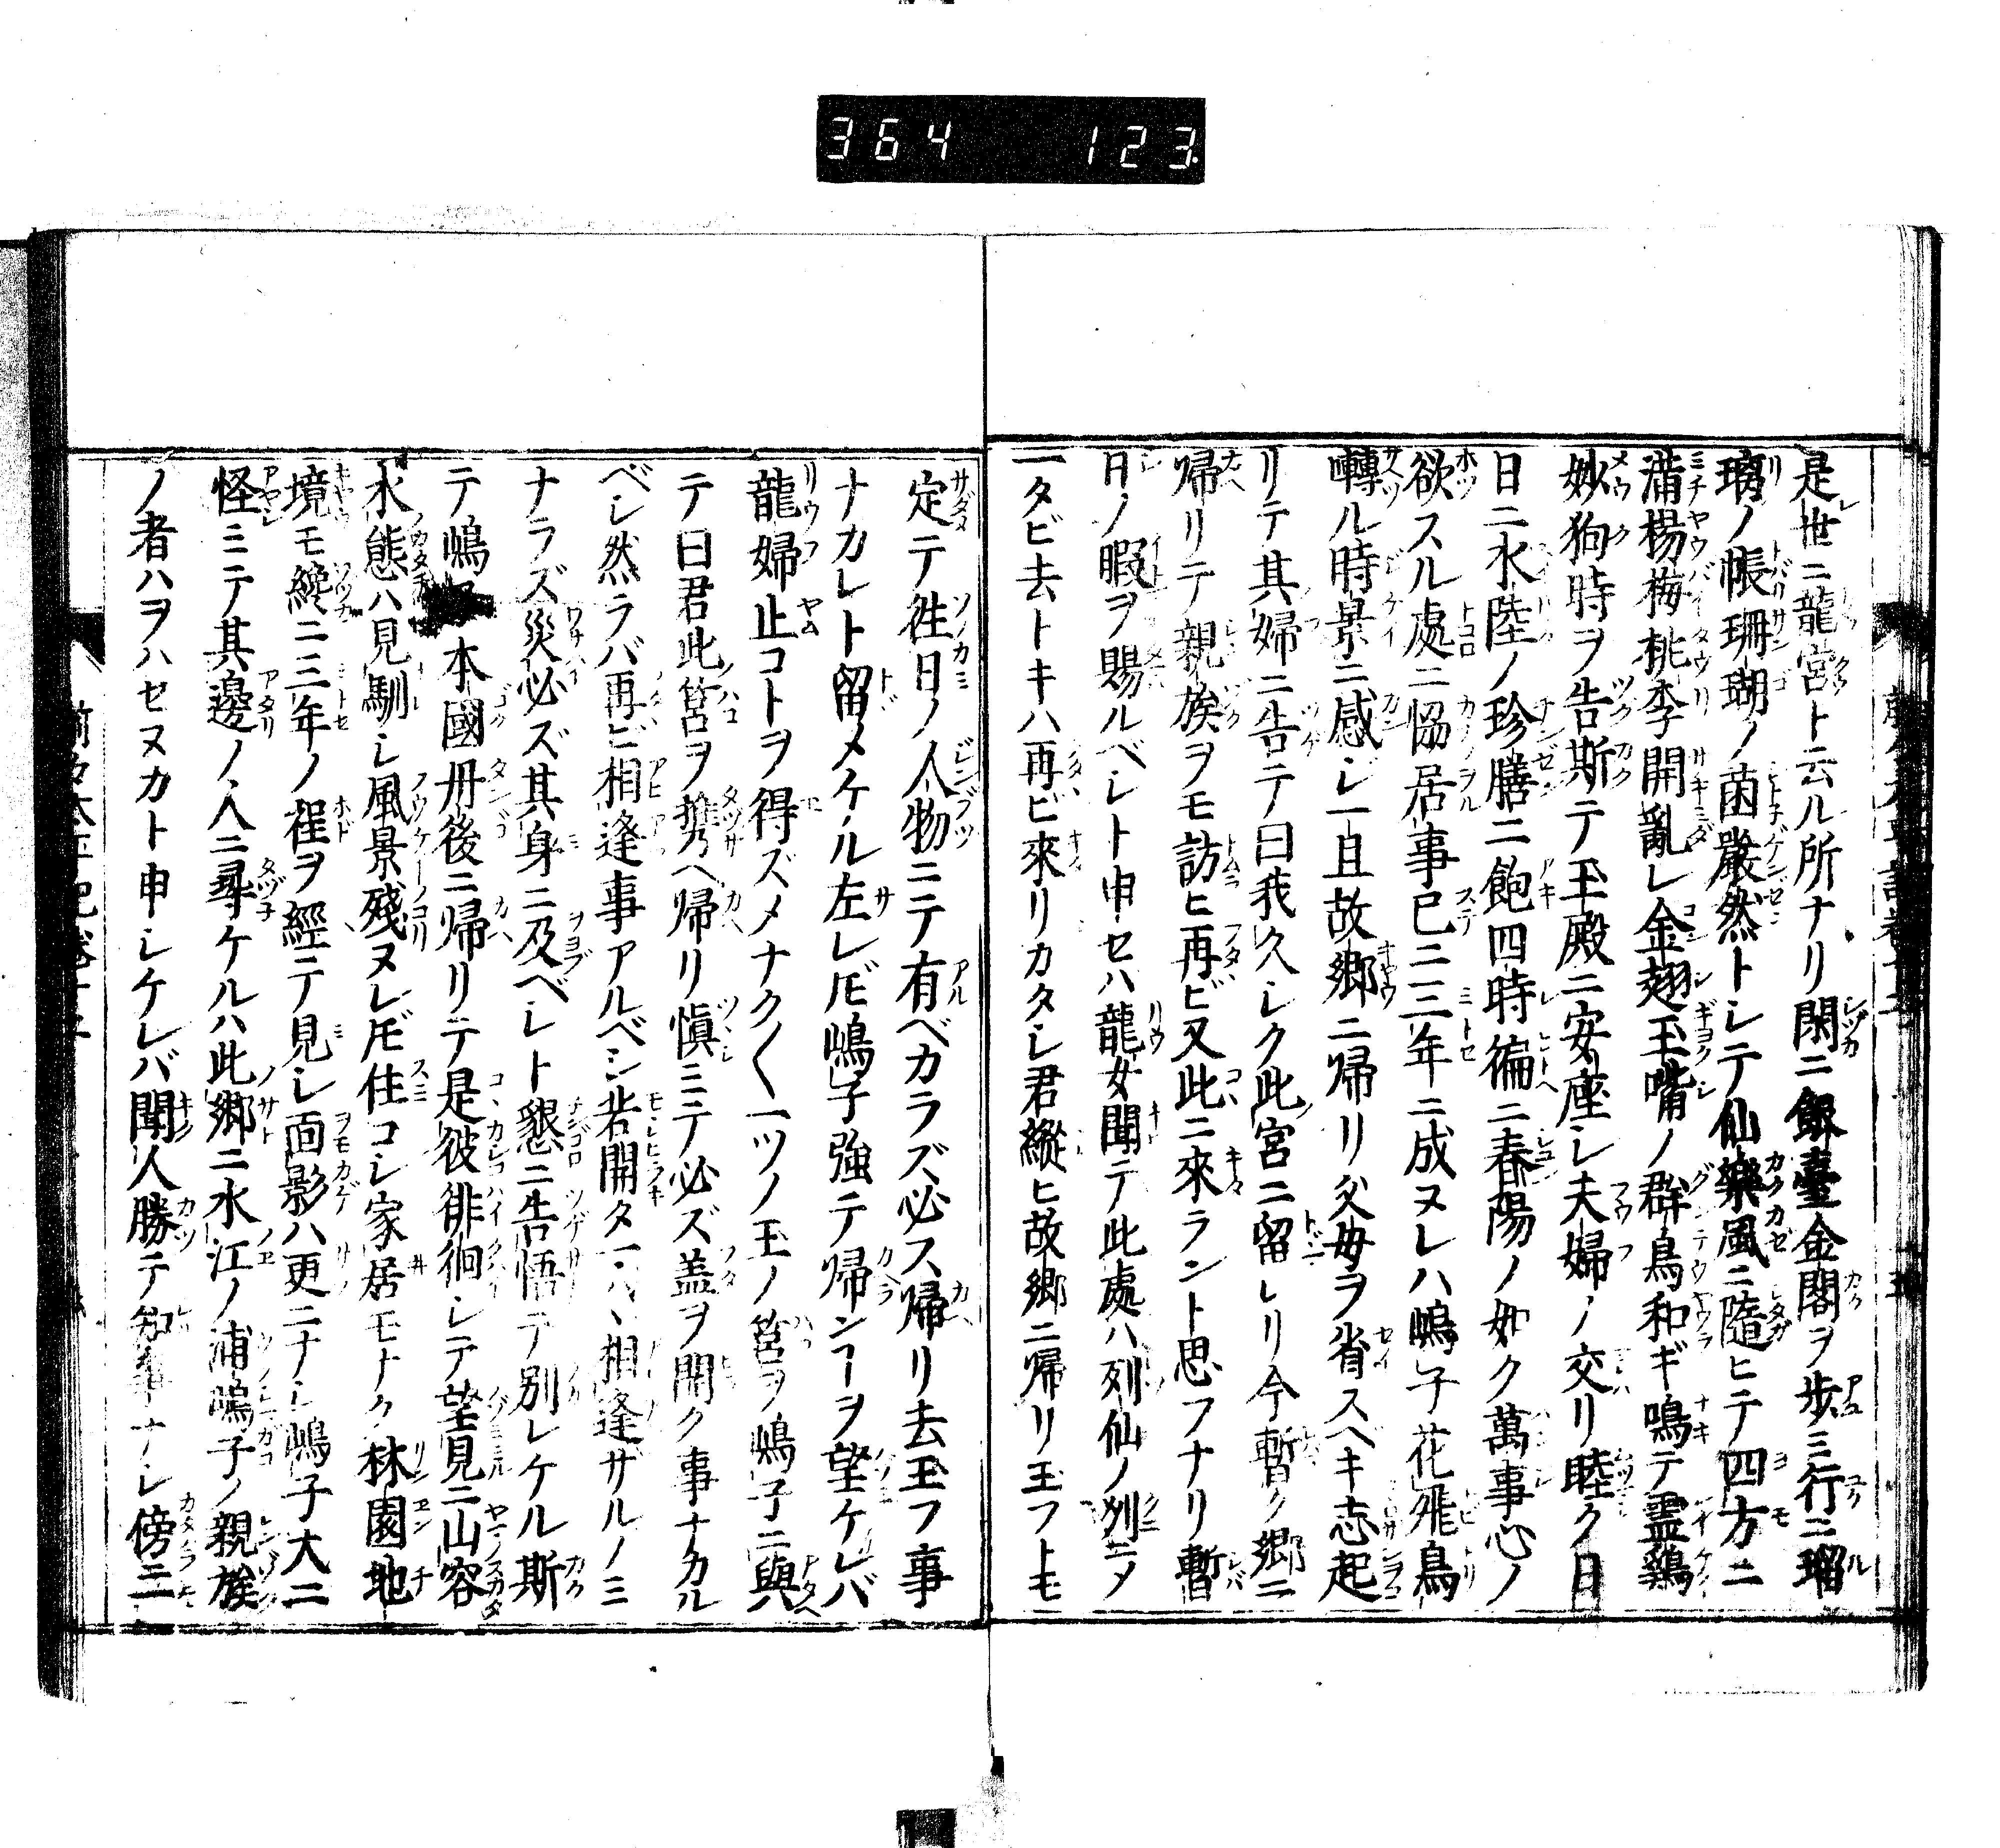 364 123
是世ニ龍宮ト云ル所ナリ閑ニ銀臺金閣ヲ歩ミ行ニ瑠
璃ノ帳珊瑚ノ茵嚴然トシテ仙樂風ニ隨ヒテ四方ニ
滿楊梅桃李開亂レ金翅玉嘴ノ群鳥和ギ鳴テ霊鶏
妙狗時ヲ告斯テ玉殿ニ安座シ夫婦ノ交リ睦ク日
日ニ水陸ノ珍膳ニ飽四時徧ニ春陽ノ如ク萬事心ノ
欲スル處ニ恊居事已ニ三年ニ成ヌレハ嶋子花飛鳥
囀ル時景ニ感シ一旦故郷ニ帰リ父母ヲ省スヘキ志起
リテ其婦ニ告テ曰我久シク此宮ニ留レリ今暫ク郷ニ
帰リテ親族ヲモ訪ヒ再ビ又此ニ來ラント思フナリ暫
日ノ暇ヲ賜ルベシト申セハ龍女聞テ此處ハ列仙ノ列ニタ
一タビ去トキハ再ビ來リカタシ君縱ヒ故郷ニ帰リ玉フトモ
定テ徃日ノ人物ニテ有ベカラズ必ス帰リ去玉フ事
ナカレト留メケル左レ𪜈嶋子強テ帰ンヿヲ望ケレバ
龍婦止コトヲ得ズメナク〱一ツノ玉ノ筥ヲ嶋子ニ與
テ曰君此筥ヲ携ヘ帰リ愼ミテ必ズ盖ヲ開ク事ナカル
ベシ然ラバ再ビ相逢事アルベシ若開タ一ハ、相逢ザルノミ
ナラズ災必ズ其身ニ及ベシト懇ニ告悟テ別レケル斯
テ嶋 本國丹後ニ帰リテ是彼徘徊シテ望見ニ山容
水態ハ見馴シ風景殘ヌレ𪜈住コシ家居モナク林園地
境モ纔ニ三年ノ程ヲ經テ見シ面影ハ更ニナシ嶋子大ニ
怪ミテ其邊ノ人ニ尋ケルハ此郷ニ水江ノ浦嶋子ノ親族
ノ者ハヲハセヌカト申シケレバ聞人勝テ知事ナシ傍ニ